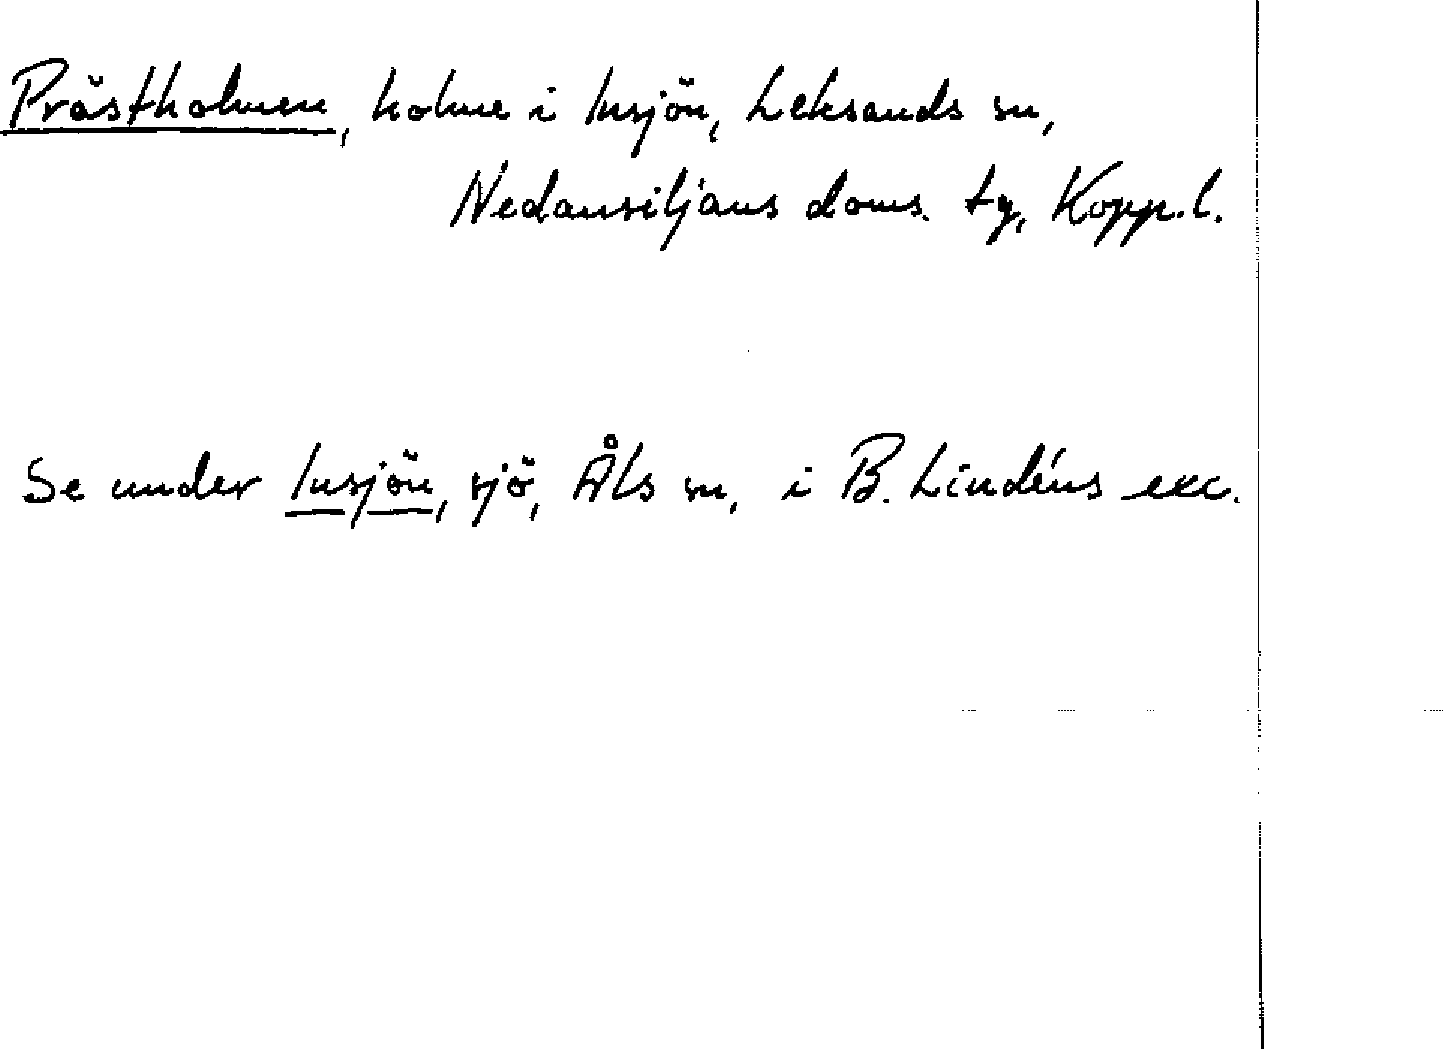 Prästholmen, holme i Insjön, Leksands sn,
Nedansiljans doms. tg, Kopp.l.
Se under Insjön, sjö, Åls sn, i B. Lindéns exc.